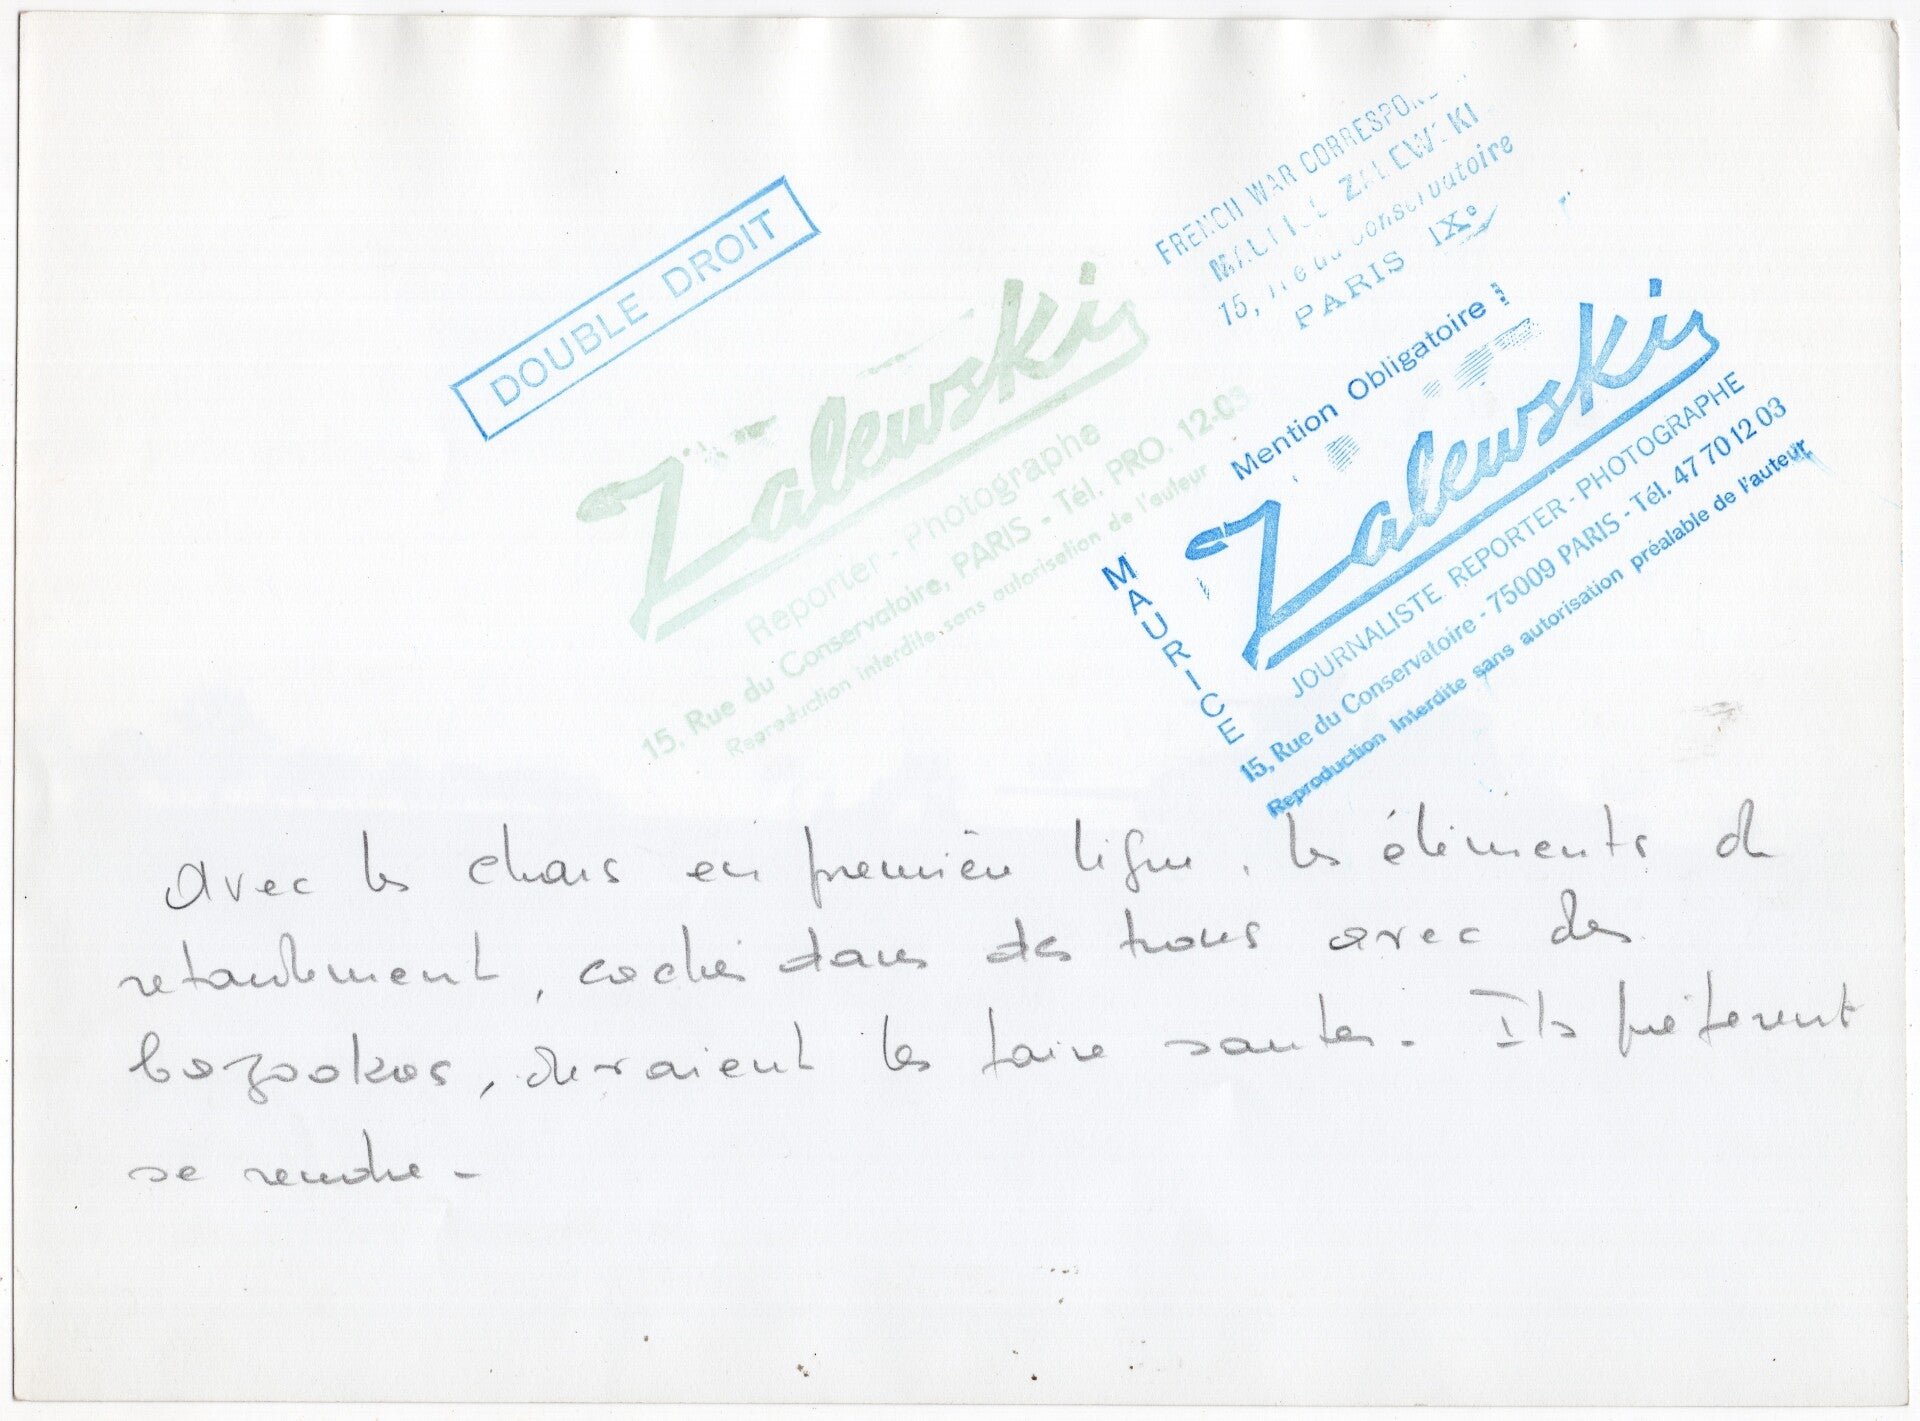 DOUBLE DROIT
FRENCH WAR
ZALEWSKI
15, Conservatoire
PARIS IXº
Zalewski
Reporter - Photographe
15, Rue du Conservatoire, PARIS - Tél. PRO. 12-03
Reproduction interdite sans autorisation de l'auteur
Mention Obligatoire !
MAURICE
Zalewski
JOURNALISTE REPORTER - PHOTOGRAPHE
15, Rue du Conservatoire - 75009 PARIS - Tél. 47 70 12 03
Reproduction Interdite sans autorisation préalable de l'auteur
Avec les chars en première ligne, les éléments de
retardement, cachés dans des trous avec des
bazookas, devaient les faire sauter. Ils préfèrent
se rendre -